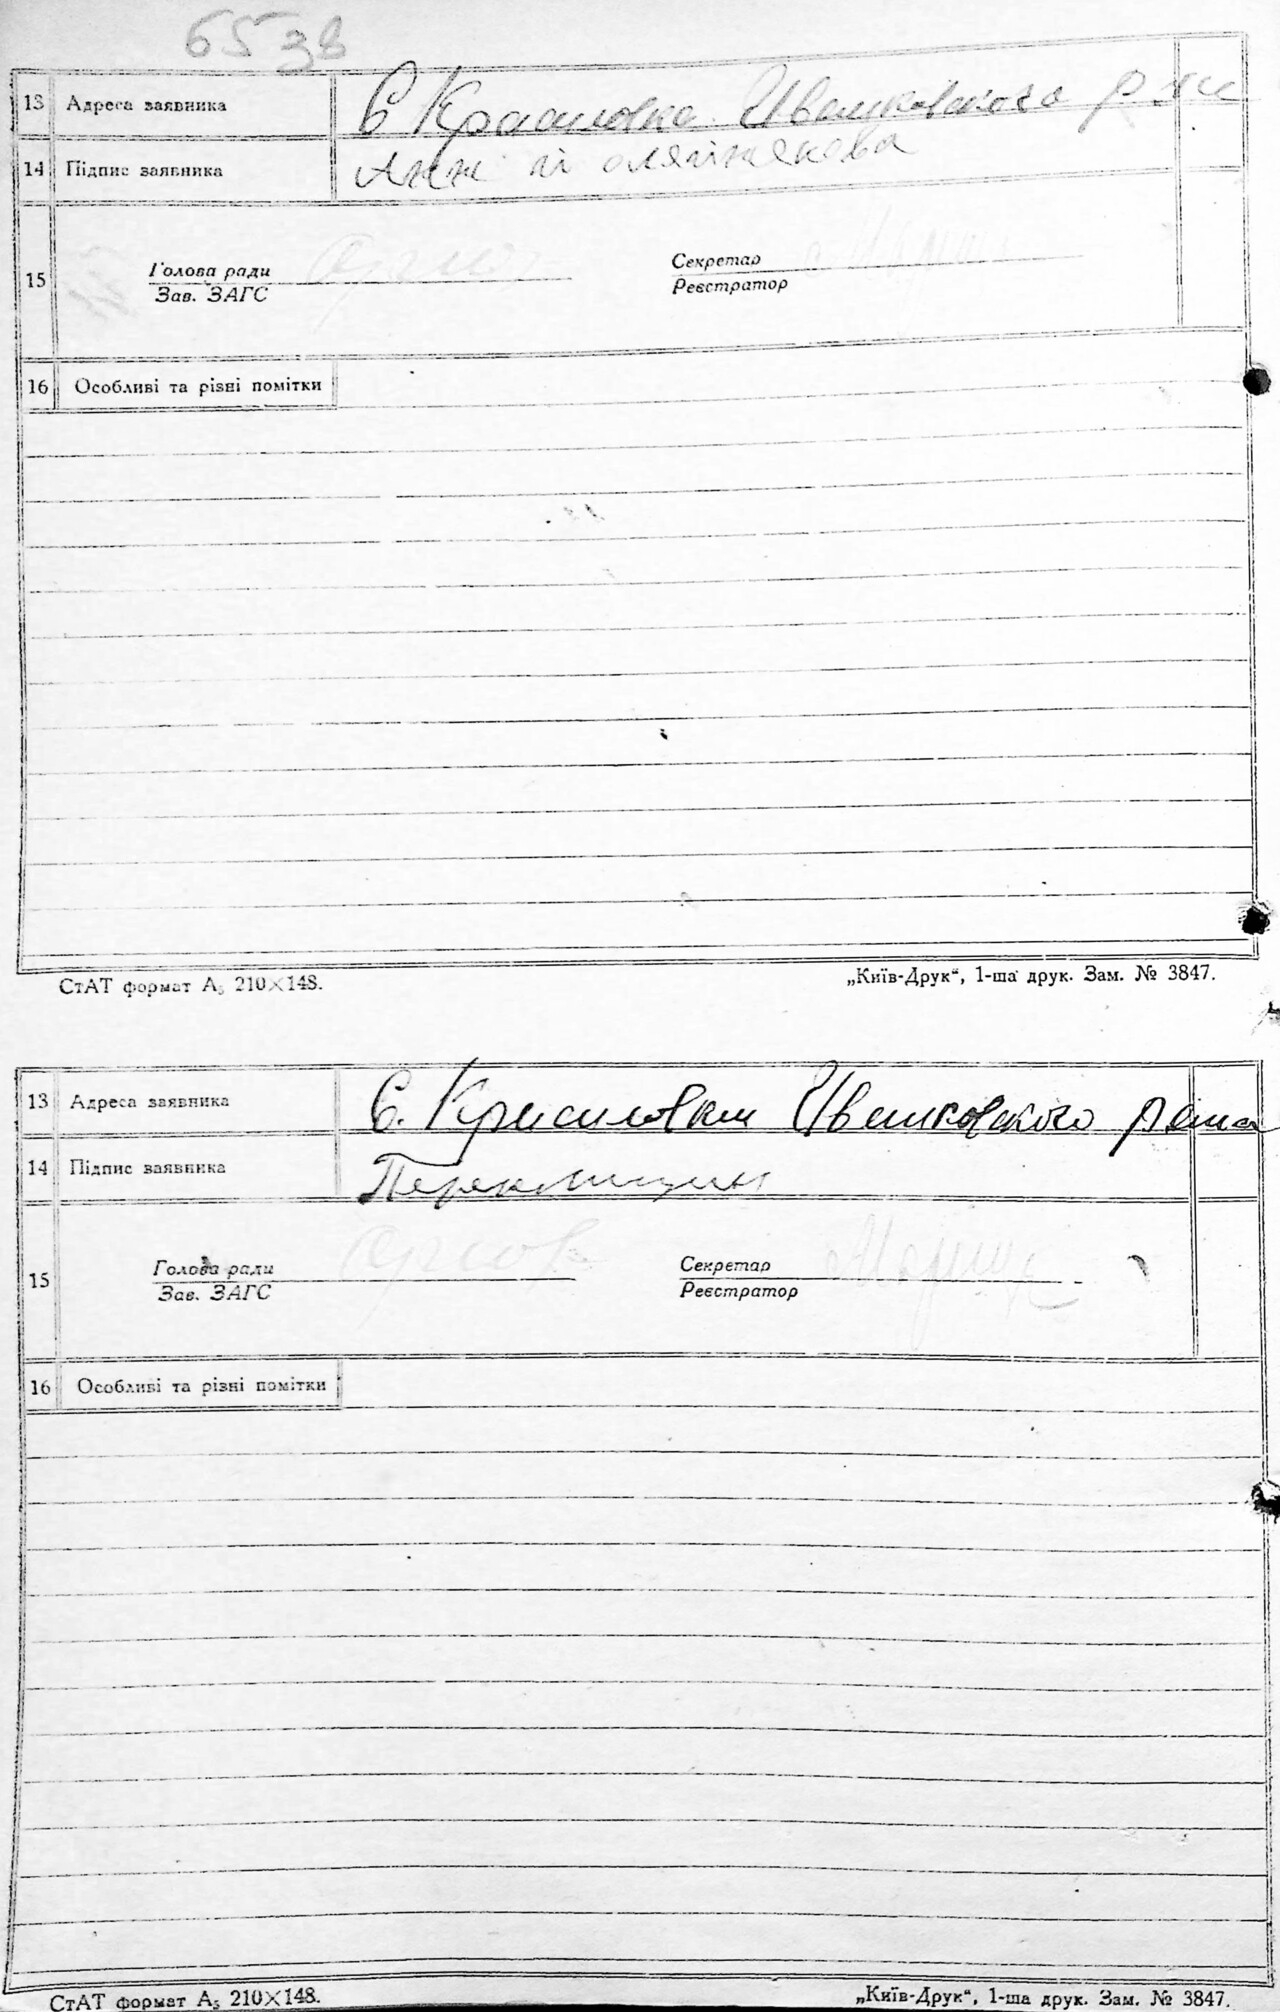 6538
13 Адреса заявника С Красиловка Ивановского р
14 Підпис заявника
15 Голова ради Секретар
Зав. ЗАГС Реєстратор
16 Особливі та різні помітки
СтАТ формат А₅ 210×148. „Київ-Друк“, 1-ша друк. Зам. № 3847.
13 Адреса заявника С. Красиловки Ивановского р
14 Підпис заявника
15 Голова ради Секретар
Зав. ЗАГС Реєстратор
16 Особливі та різні помітки
СтАТ формат А₅ 210×148. „Київ-Друк“, 1-ша друк. Зам. № 3847.